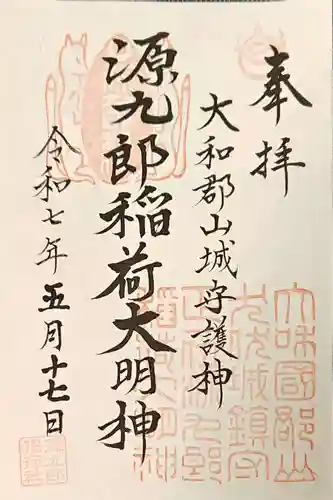 奉拝
大和郡山城守護神
源九郎稲荷大明神
令和七年五月十七日